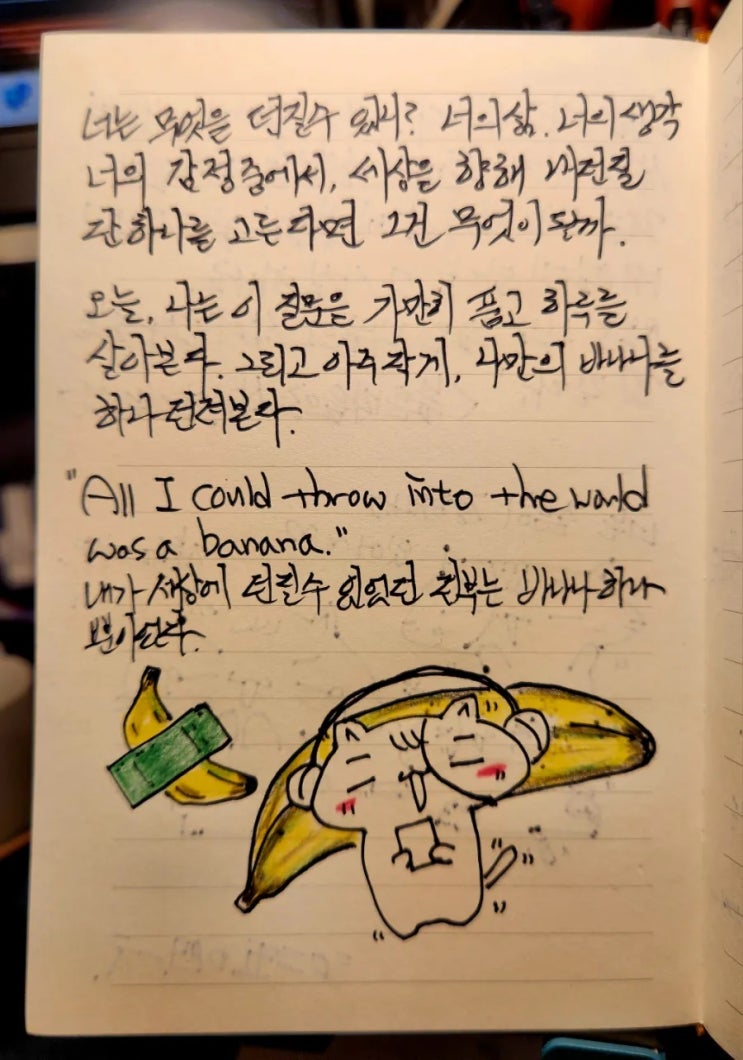 너는 무엇을 던질수 있나? 너의 삶. 너의 생각
너의 감정중에서, 세상을 향해 내던질
단 하나를 고른다면 그건 무엇이 될까.
오늘, 나는 이 질문을 가만히 품고 하루를
살아본다. 그리고 아주작게, 나만의 바나나를
하나 던져본다.
"All I could throw into the world
was a banana."
내가 세상에 던질수 있었던 전부는 바나나 하나
뿐이었다.